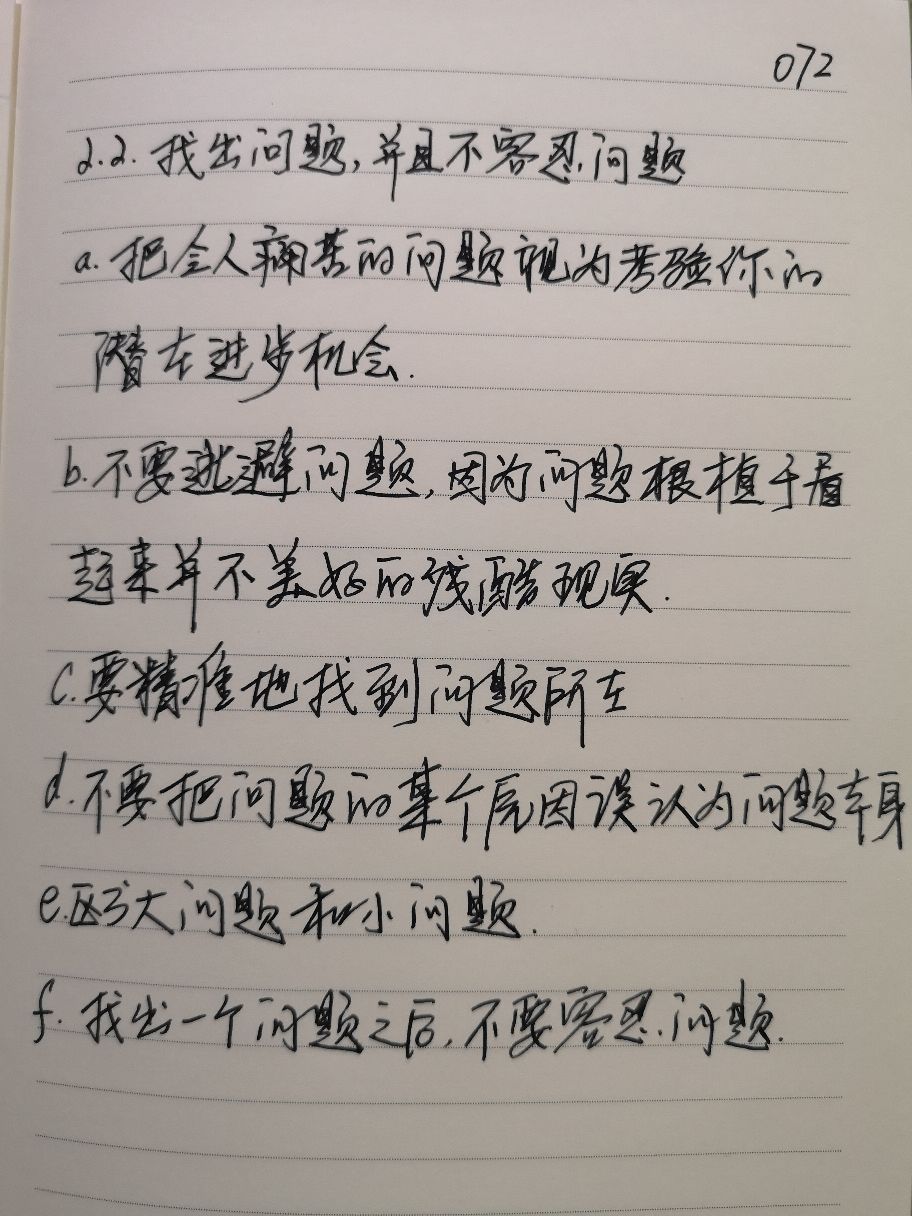 072
2.2. 找出问题,并且不容忍问题
a. 把令人痛苦的问题视为考验你的
潜在进步机会.
b. 不要逃避问题,因为问题根植于看
起来并不美好的残酷现实.
c. 要精准地找到问题所在
d. 不要把问题的某个原因误认为问题本身
e. 区分大问题和小问题.
f. 找出一个问题之后,不要容忍问题.